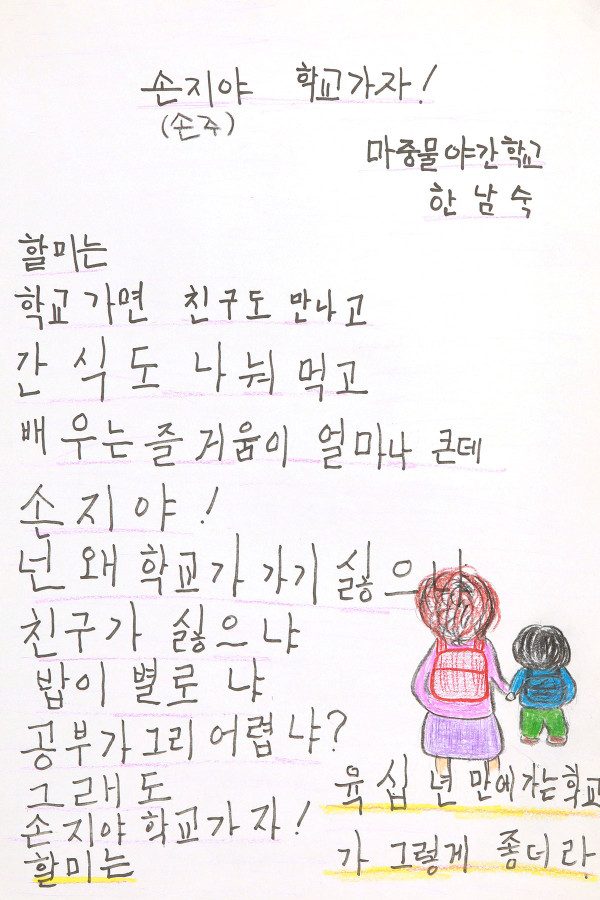 손지야 학교가자!
(손주)
마중물야간학교
한남숙
할미는
학교가면 친구도 만나고
간식도 나눠 먹고
배우는 즐거움이 얼마나 큰데
손지야!
넌 왜 학교가 가기 싫으냐
친구가 싫으냐
밥이 별로냐
공부가 그리 어렵냐?
그래도
손지야 학교가자!
할미는
육십년만에 가는 학교
가 그렇게 좋더라